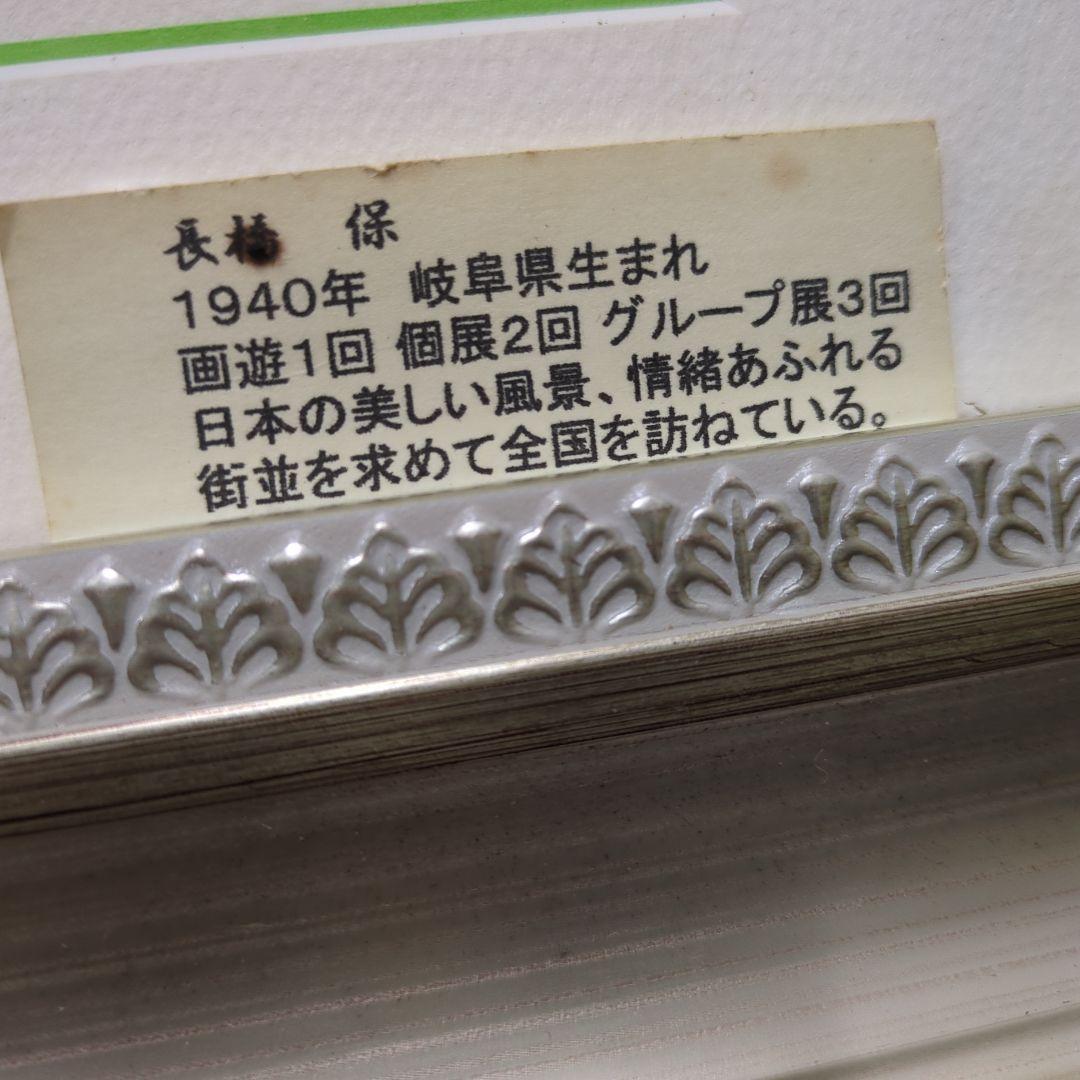 長橋 保
1940年 岐阜県生まれ
画遊1回 個展2回 グループ展3回
日本の美しい風景、情緒あふれる
街並を求めて全国を訪ねている。